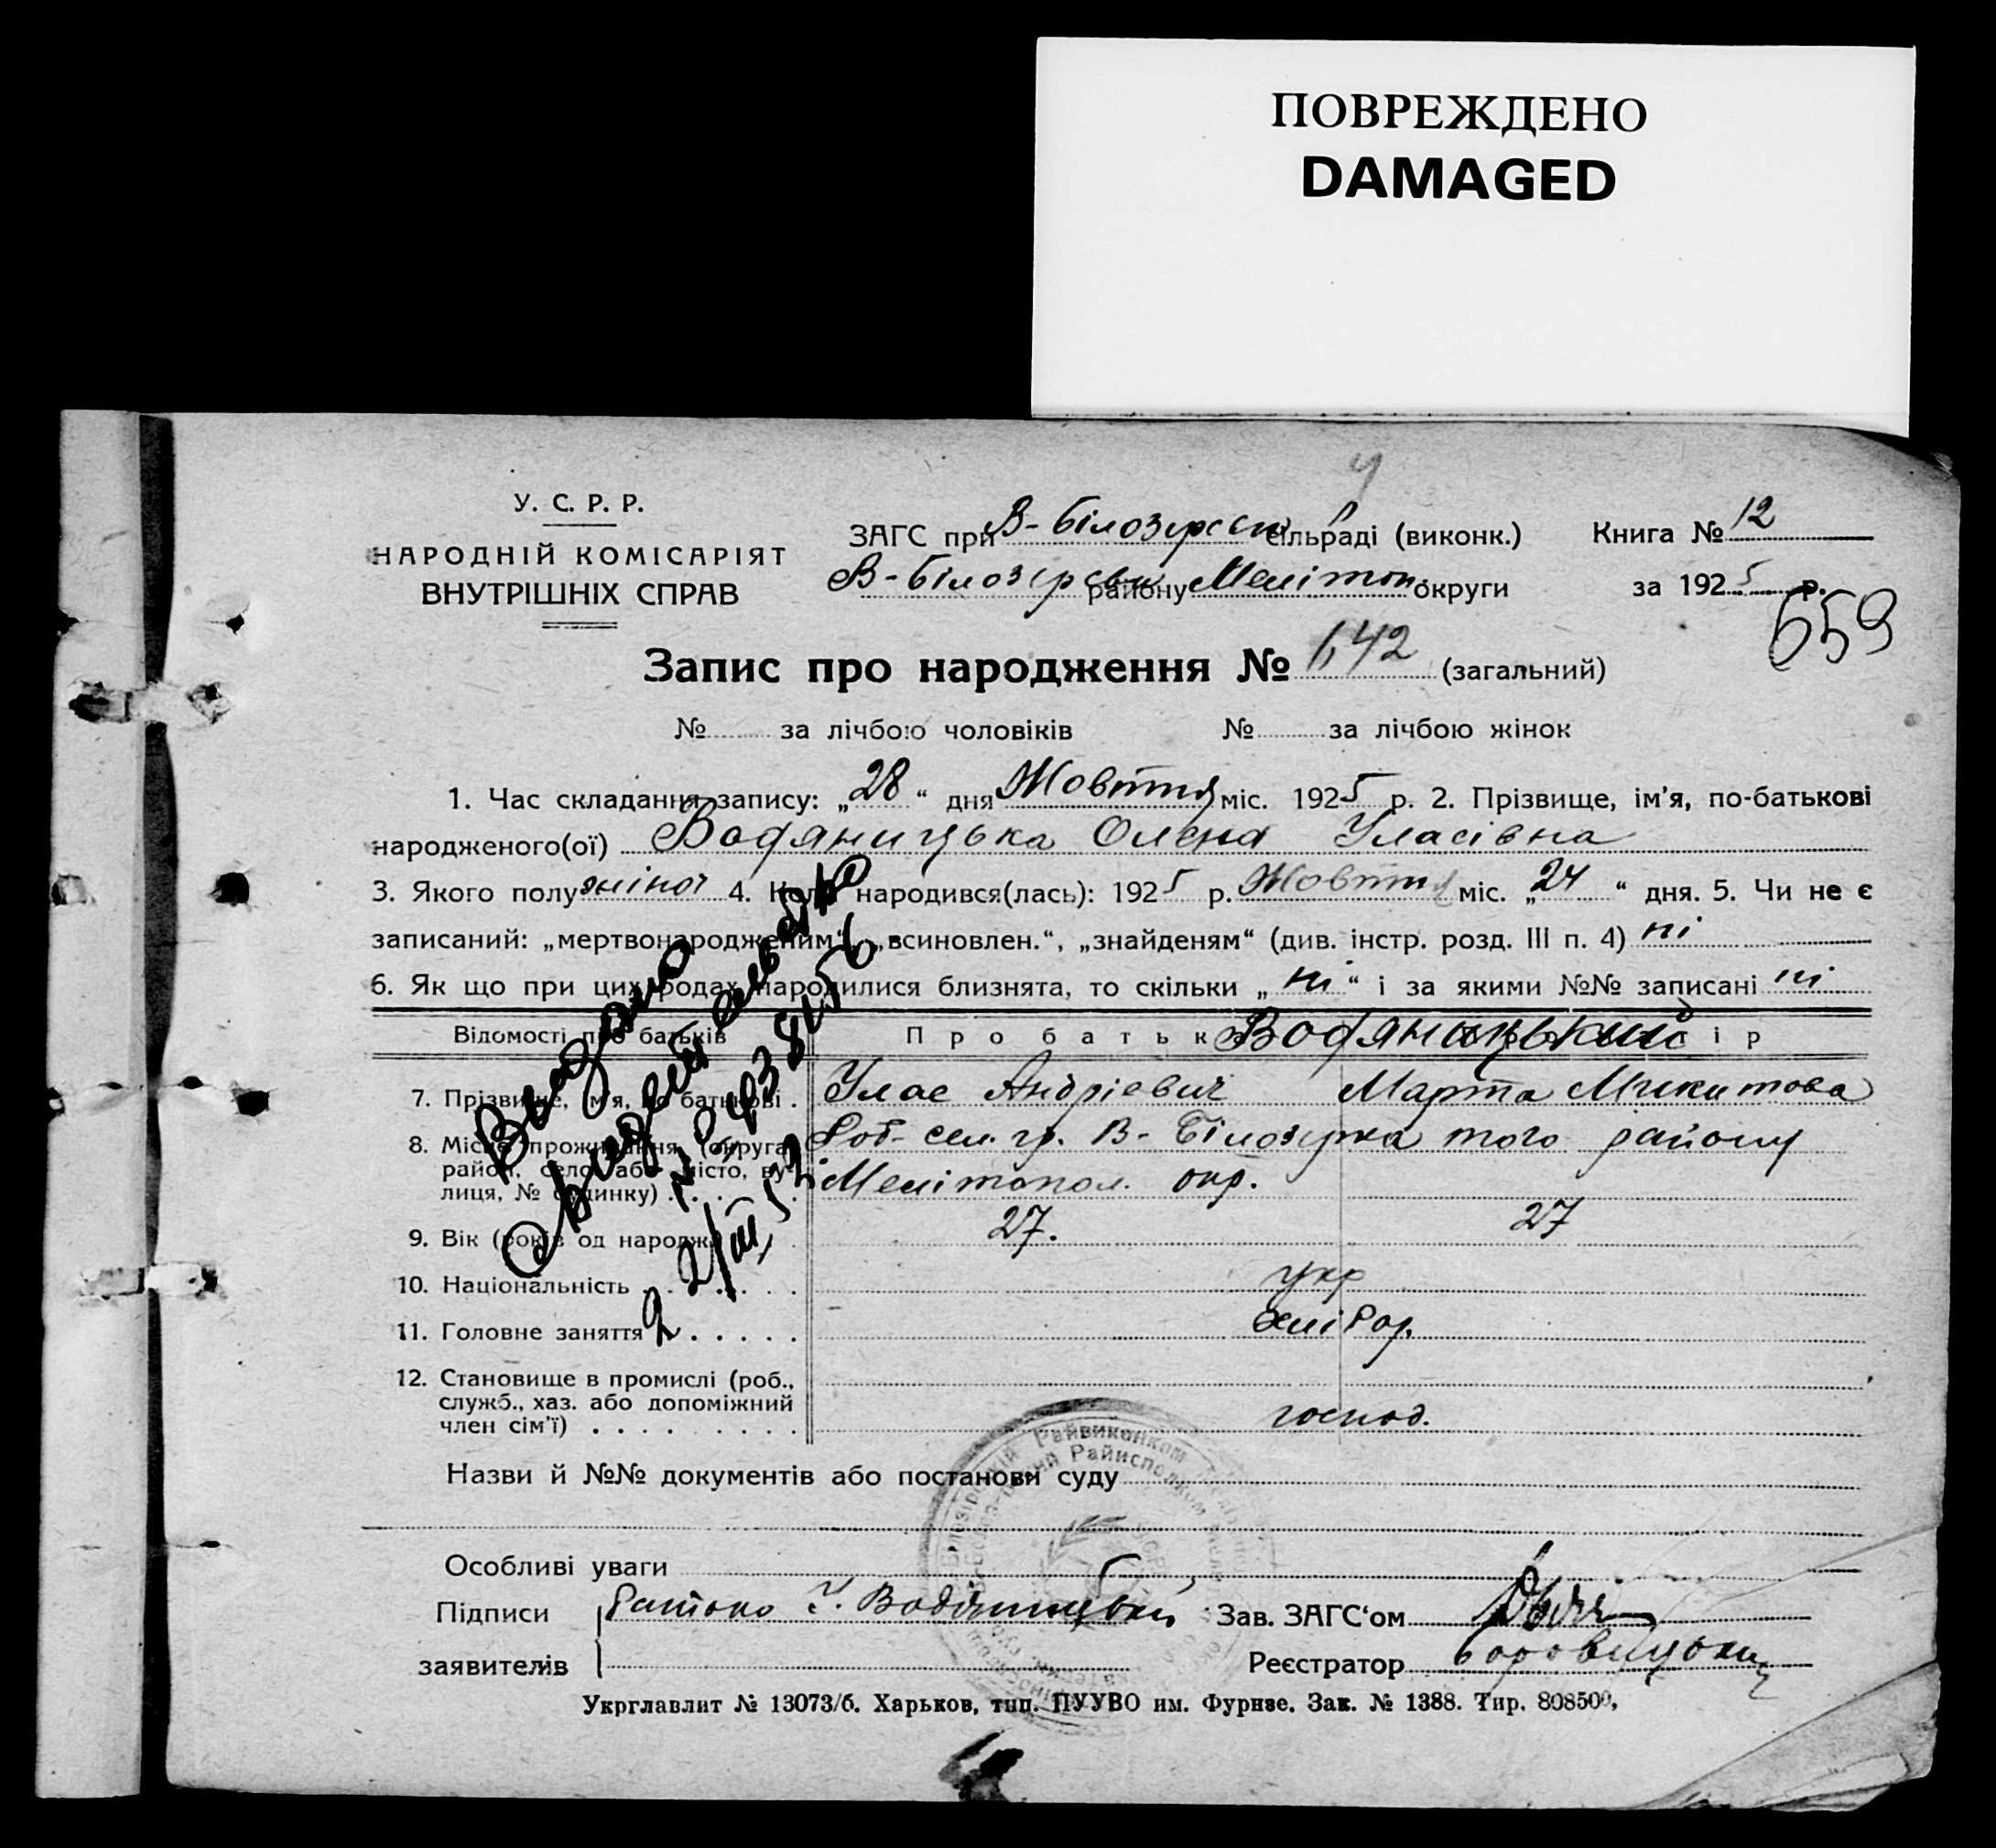 ПОВРЕЖДЕНО
DAMAGED
У. С. Р. Р.
НАРОДНІЙ КОМІСАРІЯТ
ВНУТРІШНІХ СПРАВ
ЗАГС при В-Білозерськ сільраді (виконк.)
В-Білозерськ району Мелітоп. округи
Книга № 12
за 1925 р.
659
Запис про народження № 642 (загальний)
№ за лічбою чоловіків № за лічбою жінок
1. Час складання запису: „28“ дня Жовтня міс. 1925 р. 2. Прізвище, ім'я, по-батькові
народженого(ої) Водяницька Олена Уласівна
3. Якого полу жіноч 4. Коли народився(лась): 1925 р. Жовтня міс. „24“ дня. 5. Чи не є
записаний: „мертвонародженим“, „всиновлен.“, „знайденям“ (див. інстр. розд. III п. 4) ні
6. Як що при цих родах народилися близнята, то скільки „ні“ і за якими №№ записані ні
Відомості про батьків Про батьк Водяницький ір
7. Прізвище, ім'я, по батькові . Улас Андрієвич Марта Микитова
8. Місце проживання (округа, район, село або місто, вулиця, № будинку) . . . сел. гр. В-Білозерка того району
Мелітопол. окр.
9. Вік (років од народж.) 27. 27
10. Національність . . . . . . укр
11. Головне заняття . . . . . хлібор.
12. Становище в промислі (роб.,
служб., хаз. або допоміжний
член сім'ї) . . . . . . . . . господ.
Видано
2/III 52
Назви й №№ документів або постанови суду
Райвиконком
Райисполком
Особливі уваги
Підписи Батько У. Водяницький Зав. ЗАГС'ом
заявителів Реєстратор Боровицький
Укрглавлит № 13073/б. Харьков, тип. ПУУВО им. Фрунзе. Зак. № 1388. Тир. 808500,